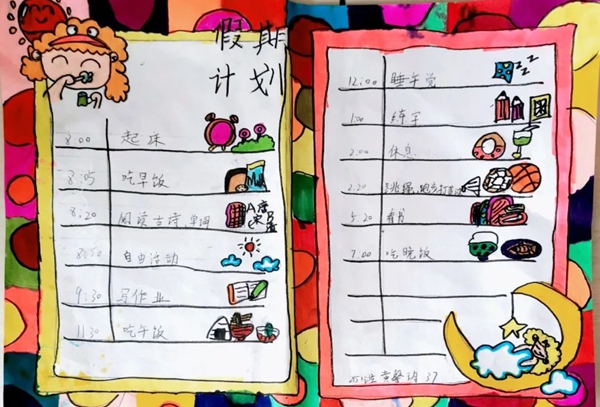 假期
计划
8:00 起床
8:05 吃早饭
8:20 阅读古诗、单词
自由活动
9:30 写作业
11:30 吃午饭
12:00 睡午觉
zzz
1:00 练字
2:00 休息
跳绳、跑步打
5:20 看书
7:00 吃晚饭